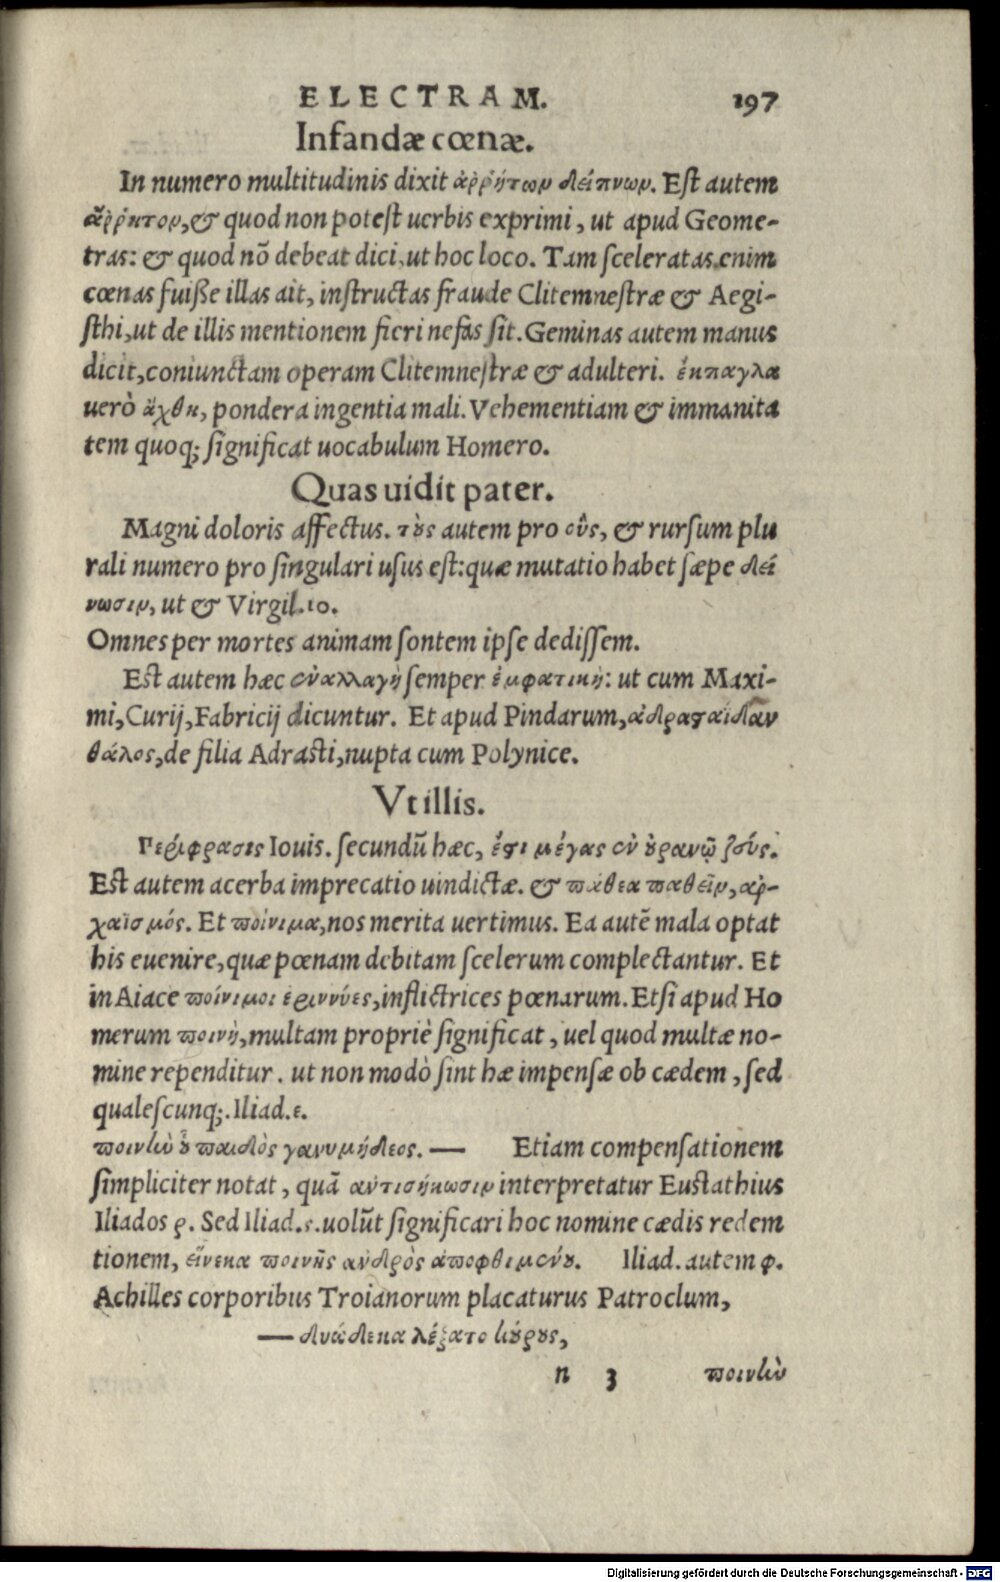 ELECTRAM. 197
Infandæ cœnæ.
In numero multitudinis dixit ἀῤῥήτων δείπνων. Est autem
ἄῤῥητον, & quod non potest uerbis exprimi, ut apud Geome-
tras: & quod nō debeat dici, ut hoc loco. Tam sceleratas enim
cœnas fuisse illas ait, instructas fraude Clitemnestræ & Aegi-
sthi, ut de illis mentionem fieri nefas sit. Geminas autem manus
dicit, coniunctam operam Clitemnestræ & adulteri. ἔκπαγλα
uerò ἄχθη, pondera ingentia mali. Vehementiam & immanita
tem quoq; significat uocabulum Homero.
Quas uidit pater.
Magni doloris affectus. τοὺς autem pro οὓς, & rursum plu
rali numero pro singulari usus est: quæ mutatio habet sæpe δεί
νωσιν, ut & Virgil. 10.
Omnes per mortes animam sontem ipse dedissem.
Est autem hæc ἐναλλαγὴ semper ἐμφατικὴ: ut cum Maxi-
mi, Curij, Fabricij dicuntur. Et apud Pindarum, ἀδραστιδᾶν
θάλος, de filia Adrasti, nupta cum Polynice.
Vt illis.
Περίφρασις Iouis. secundū hæc, ἔστι μέγας ἐν οὐρανῷ ζεύς.
Est autem acerba imprecatio uindictæ. & πάθεα παθεῖν, ἀρ-
χαϊσμός. Et ποίνιμα, nos merita uertimus. Ea autē mala optat
his euenire, quæ pœnam debitam scelerum complectantur. Et
in Aiace ποίνιμοι ἐριννύες, inflictrices pœnarum. Etsi apud Ho
merum ποινὴ, multam propriè significat, uel quod multæ no-
mine rependitur. ut non modò sint hæ impensæ ob cædem, sed
qualescunq;. Iliad. ε.
ποινὴν ὃ παιδὸς γανυμήδεος. — Etiam compensationem
simpliciter notat, quā ἀντισήκωσιν interpretatur Eustathius
Iliados ρ. Sed Iliad. σ. uolūt significari hoc nomine cædis redem
tionem, εἵνεκα ποινῆς ἀνδρὸς ἀποφθιμένου. Iliad. autem φ.
Achilles corporibus Troianorum placaturus Patroclum,
— δυώδεκα λέξατο κούρους,
n 3 ποινὴν
Digitalisierung gefördert durch die Deutsche Forschungsgemeinschaft - DFG